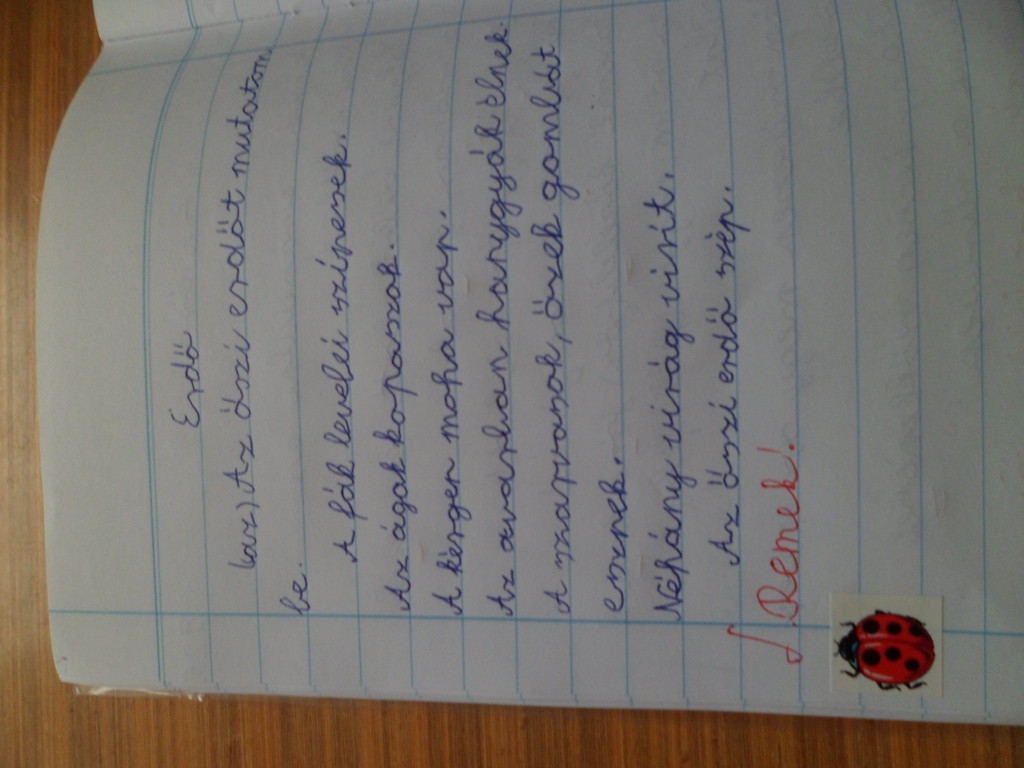 Erdő
(asz) Az őszi erdőt mutatom
be.
A fák levelei színesek.
Az ágak kopaszok.
A kérgen moha van.
Az avarban hangyák élnek.
A szarvasok, őzek gombát
esznek.
Néhány virág virít.
Az őszi erdő szép.
Remek!